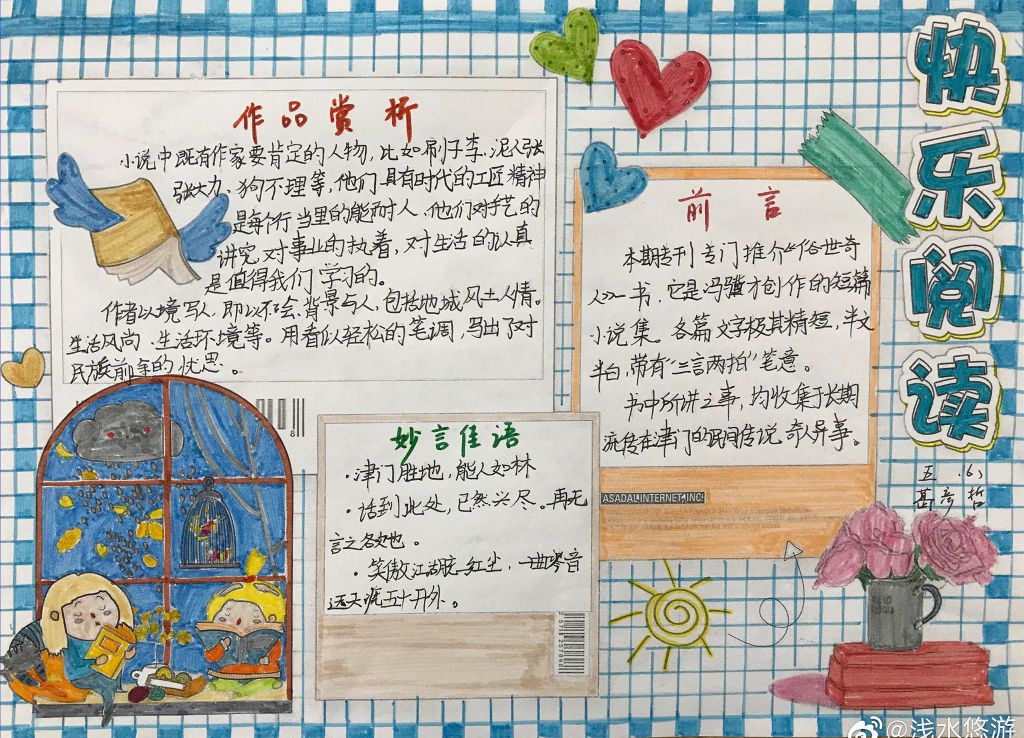 快乐阅读
作品赏析
小说中既有作家要肯定的人物，比如刷子李、泥人张
张大力、狗不理等，他们具有时代的工匠精神
是每个行当里的能耐人，他们对手艺的
讲究对事业的执着，对生活的认真
是值得我们学习的。
作者以境写人，即以不会、背景与人，包括地域风土人情。
生活风尚、生活环境等。用看似轻松的笔调，写出了对
民族前途的忧思。
前言
本期专刊专门推介《俗世奇
人》一书，它是冯骥才创作的短篇
小说集。各篇文字极其精短，半文
半白，带有“三言两拍”笔意。
书中所讲之事，均收集于长期
流传在津门的民间传说奇人异事。
ASADAL INTERNET, INC.
妙言佳语
·津门胜地，能人如林
·话到此处，已然兴尽。再无
言之各她。
·笑傲江湖脱红尘，一曲琴音
五.6
葛彦哲
@浅水悠游